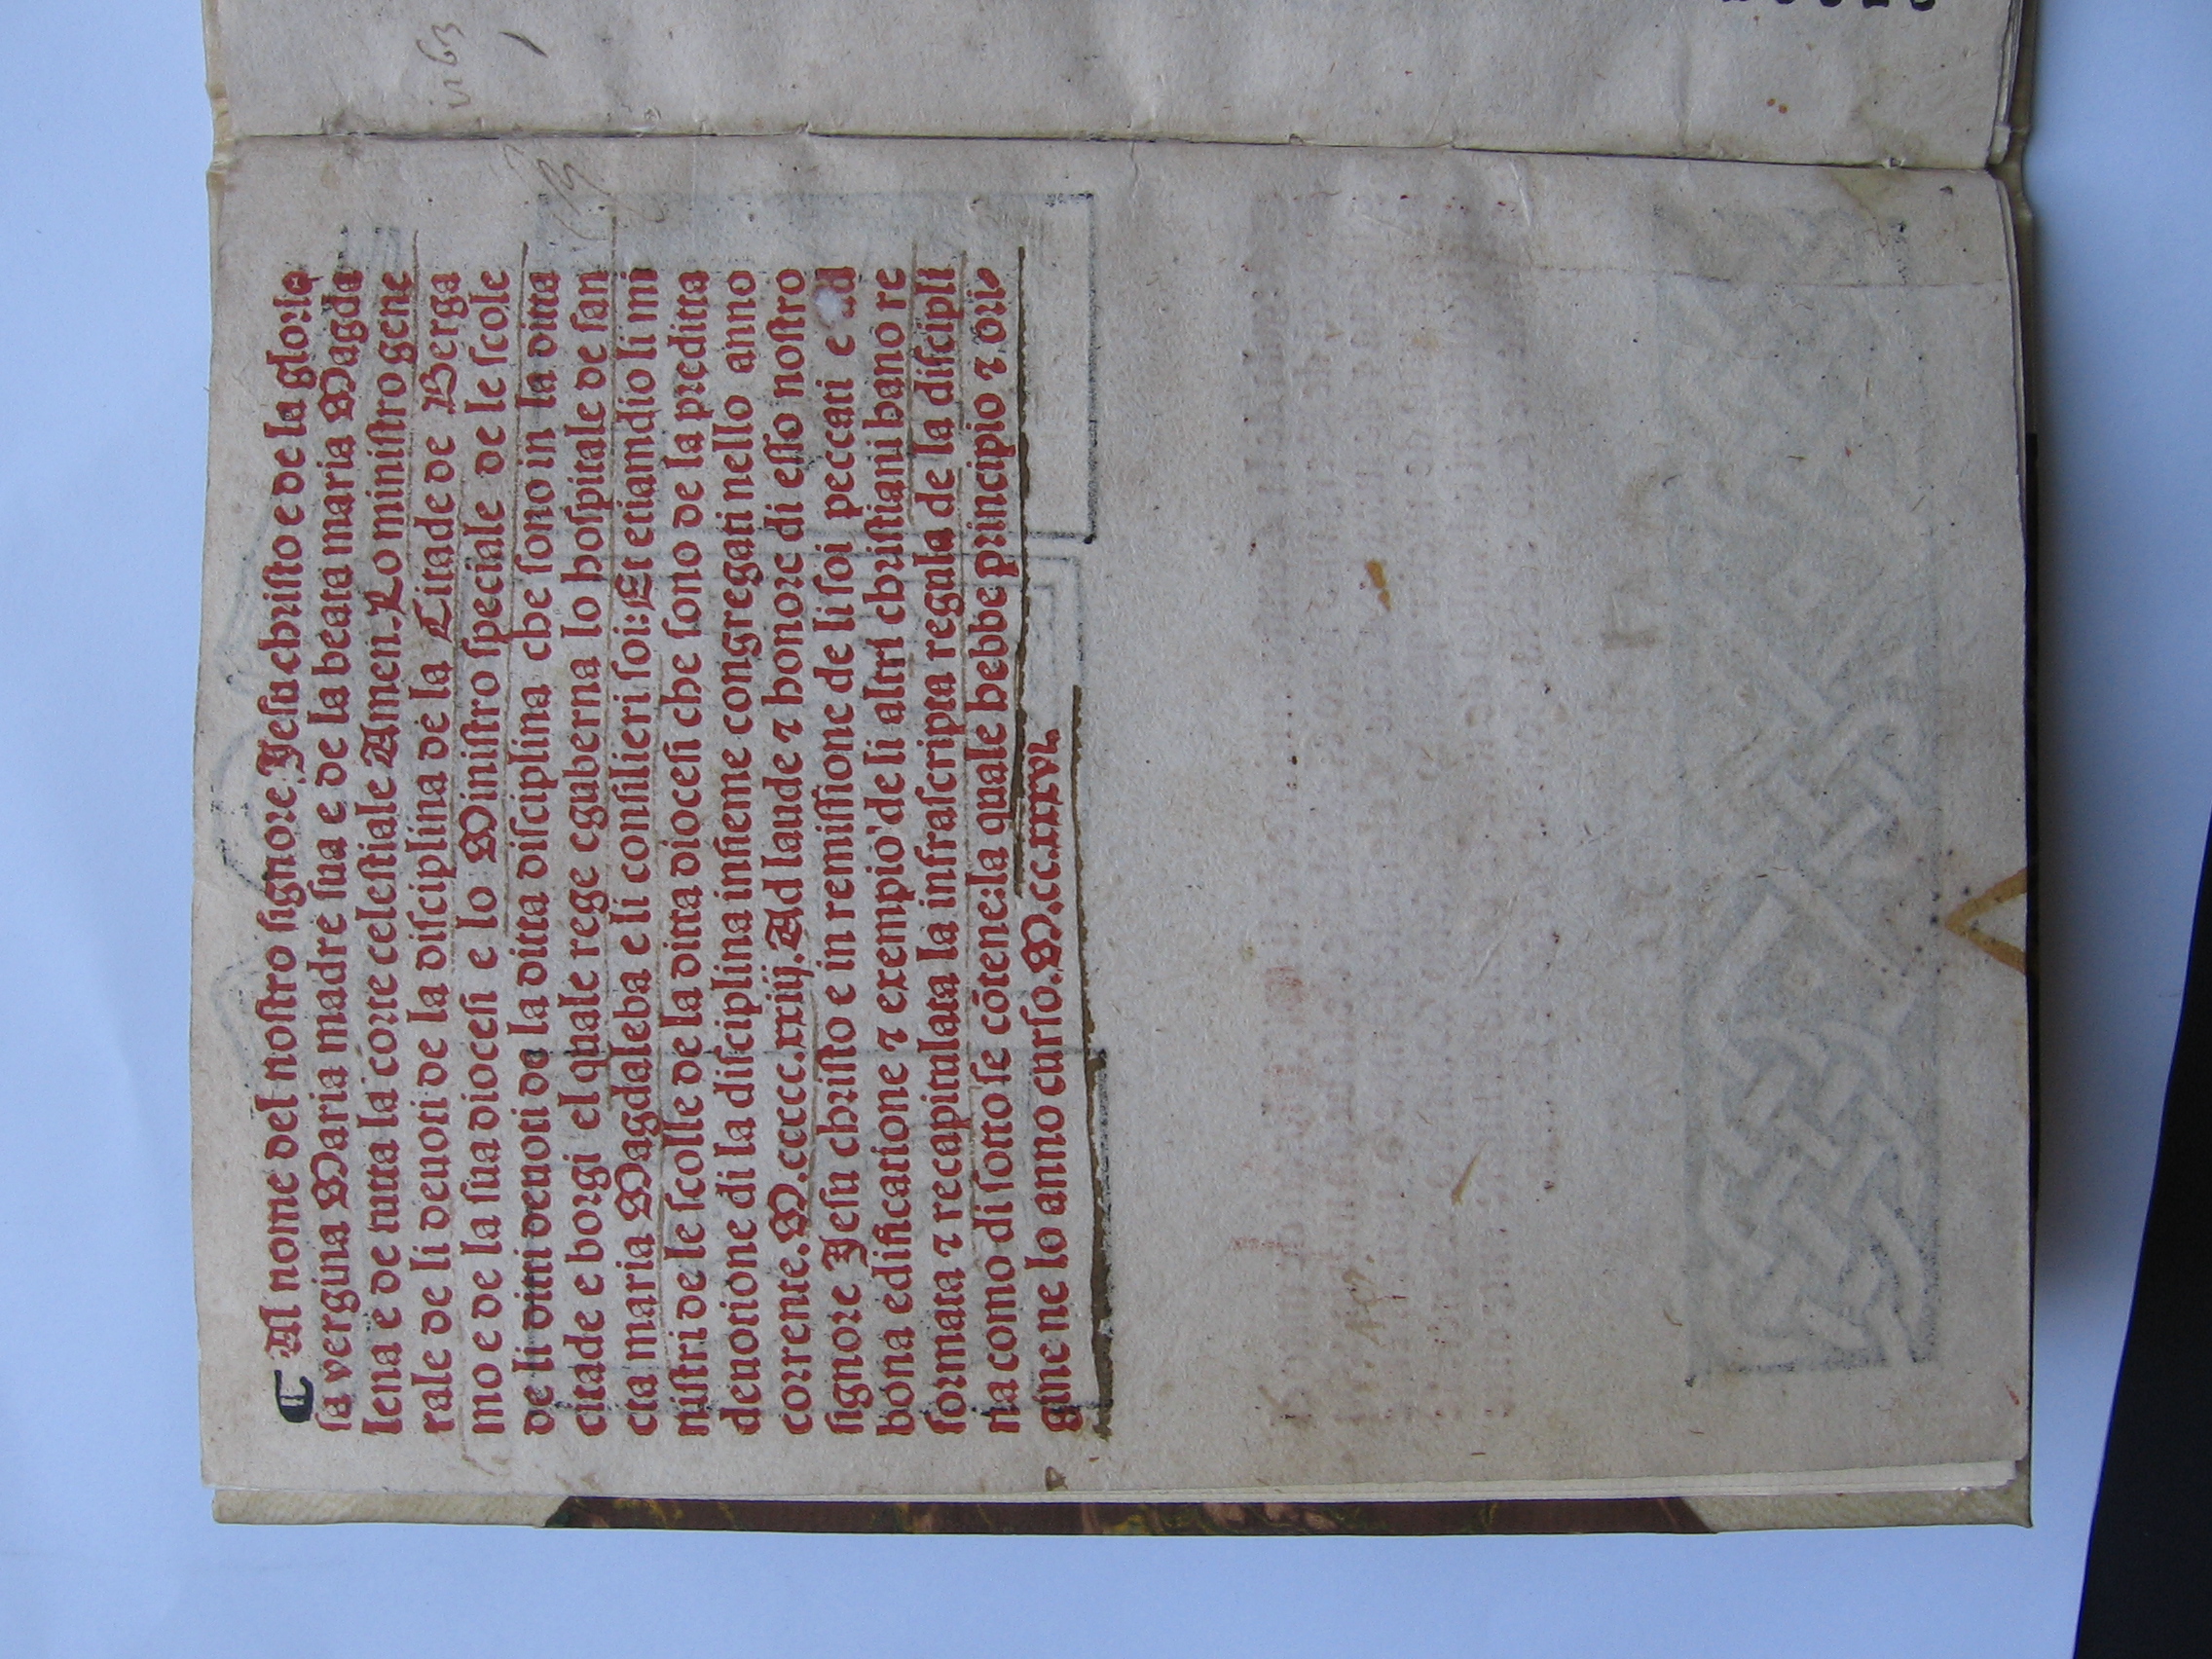 Al nome del nostro signore Jesu christo e de la glorio
sa vergina Maria madre sua e de la beata maria Magda
lena e de tutta la corte celestiale Amen. Lo ministro gene
rale de li deuoti de la disciplina de la Citade de Berga
mo e de la sua diocesi e lo Ministro speciale de le scole
de li ditti deuoti de la ditta disciplina che sono in la ditta
citade e borgi el quale rege e guberna lo hospitale de san
cta maria Magdaleba e li consilieri soi: Et etiamdio li mi
nistri de le scolle de la ditta diocesi che sono de la preditta
deuotione di la disciplina insieme congregati nello anno
corrente. M.ccccc.xxiiij. Ad laude ⁊ honore di esso nostro
signore Jesu christo e in remissione de li soi peccati e ad
bona edificatione ⁊ exempio de li altri christiani hano re
formata ⁊ recapitulata la infrascripta regula de la discipli
na como di sotto se cōtene: la quale hebbe principio ⁊ ori
gine ne lo anno curso. M.ccc.xxxvj.